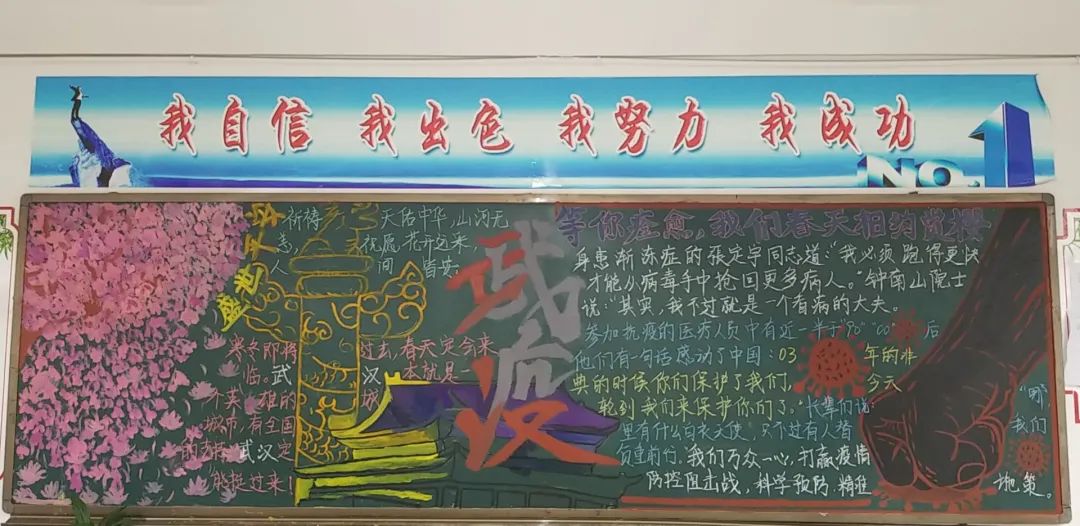 我自信 我出色 我努力 我成功
No.1
祈祷 天佑中华,山河无
恙,祝愿 花开疫来,
人 间 皆安!
寒冬即将 过去,春天定会来
临。武 汉 本就是一
个英雄的 城
城市,有全国
的支持,武汉定
能挺过来!
武汉
等你痊愈,我们春天相约赏樱
身患渐冻症的张定宇同志道:"我必须跑得更快
才能从病毒手中抢回更多病人。"钟南山院士
说:"其实,我不过就是一个看病的大夫。
参加抗疫的医务人员中有近一半于"90""00" 后
他们有一句话感动了中国:03 年的非
典的时候你们保护了我们, 今天
轮到我们来保护你们了。"长辈们说: "哪
里有什么白衣天使,只不过有人替 我们
负重前行。我们万众一心,打赢疫情
防控阻击战,科学预防.精准 施策。